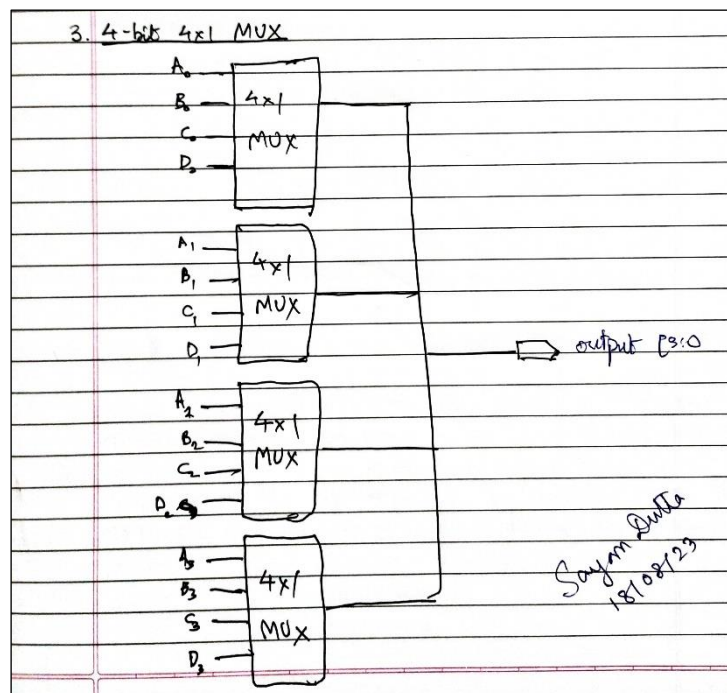 3. 4-bit 4x1 MUX
A₀
B₀
C₀
D₀
4x1
MUX
A₁
B₁
C₁
D₁
4x1
MUX
output [3:0
A₂
B₂
C₂
D₂
4x1
MUX
A₃
B₃
C₃
D₃
4x1
MUX
Sayan Dutta
18/08/23